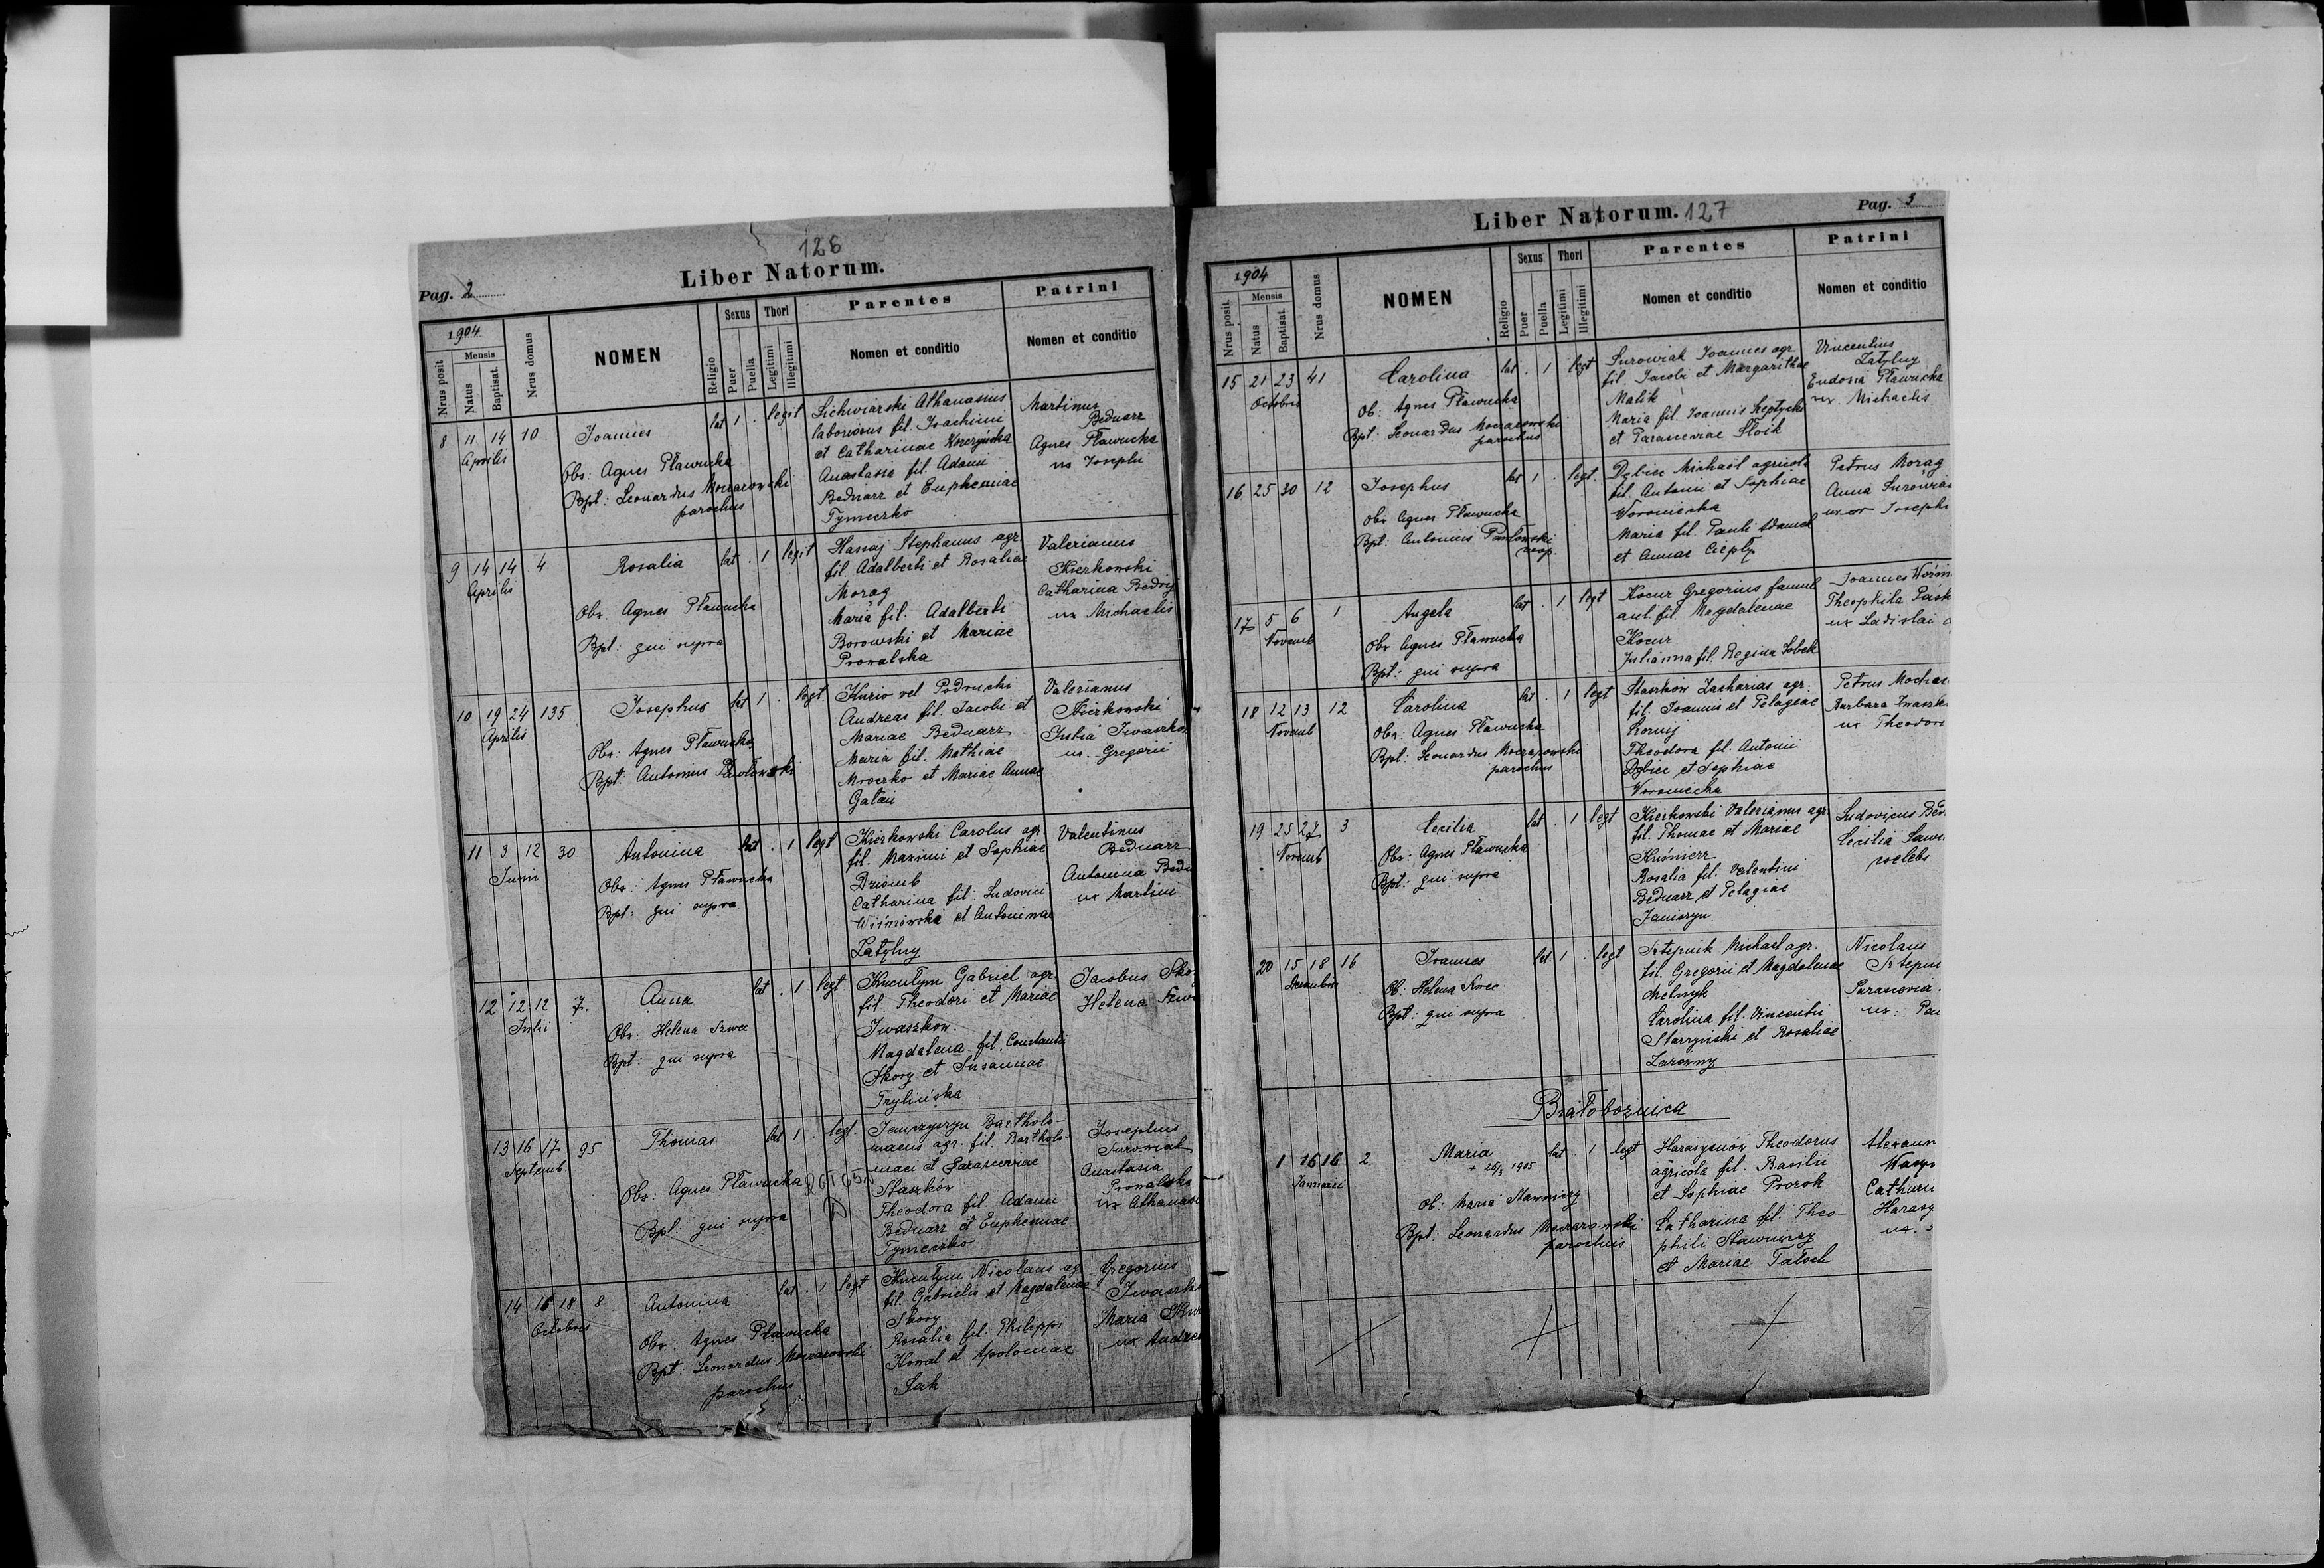 126
Pag. 2
Liber Natorum.
1904
Nrus posit
Mensis
Natus
Baptisat.
Nrus domus
NOMEN
Religio
Sexus
Puer
Puella
Thori
Legitimi
Illegitimi
Parentes
Nomen et conditio
Patrini
Nomen et conditio
8 11 14 10
Aprilis
Joannes
Obs: Agnes Pławucka
Bpt: Leonardus Moczarowski
parochus
lat 1 . legit
Lichwiarski Athanasius
laboriosus fil. Joachimi
et Catharinae
Anastasia fil. Adami
Bednarz et Eupheniae
Tymeczko
Martinus
Bednarz
Agnes Pławucka
ux Josephi
9 14 14 4
Aprilis
Rosalia
Obs. Agnes Pławucka
Bpt: qui supra
lat . 1 legit
Hassaj Stephanus agr.
fil. Adalberti et Rosaliae
Morąg
Maria fil. Adalberti
Borowski et Mariae
Prowalska
Valerianus
Kierkowski
Catharina Bedrij
ux Michaelis
10 19 24 135
Aprilis
Josephus
Obs: Agnes Pławucka
Bpt: Antonius Pawłowski
lat 1 . legt
Kurio vel Podrucki
Andreas fil. Jacobi et
Mariae Bednarz
Maria fil. Mathiae
Mroczko et Mariae Annae
Gałan
Valerianus
Kierkowski
Julia Iwaszko
ux. Gregorii
11 3 12 30
Junii
Antonina
Obs: Agnes Pławucka
Bpt: qui supra
lat . 1 legt
Kierkowski Carolus agr.
fil. Maximi et Sophiae
Dziomb
Catharina fil. Ludovici
Wiśniowski et Antoninae
Zatylny
Valentinus
Bednarz
Antonina Bedn
ux Martini
12 12 12 7.
Julii
Anna
Obs: Helena Szwec
Bpt: qui supra
lat . 1 legt
Kucułym Gabriel agr.
fil. Theodori et Mariae
Iwaszkow.
Magdalena fil. Constantii
Skory et Susannae
Trylińska
Jacobus Sko
Helena Szwe
13 16 17 95
Septemb.
Thomas
Obs: Agnes Pławucka
Bpt: qui supra
lat 1 . legt.
Janczyszyn Bartholo-
maeus agr. fil. Bartholo-
maei et Parasceviae
Staszków
Theodora fil. Adami
Bednarz et Eupheniae
Tymeczko
Josephus
Surowiak
Anastasia
Prowalska
ux Athanasi
14 16 18 8
Octobris
Antonina
Obs: Agnes Pławucka
Bpt: Leonardus Moczarowski
parochus
lat . 1 legt
Kucułym Nicolaus ag
fil. Gabrielis et Magdalenae
Skory
Rosalia fil. Philippi
Kowal et Apoloniae
Sak
Gregorius
Iwaszk
Maria
ux Andre
Liber Natorum. 127
Pag. 3
1904
Nrus posit.
Mensis
Natus
Baptisat.
Nrus domus
NOMEN
Religio
Sexus
Puer
Puella
Thori
Legitimi
Illegitimi
Parentes
Nomen et conditio
Patrini
Nomen et conditio
15 21 23 41
Octobris
Carolina
Ob: Agnes Pławucka
Bpt: Leonardus Moczarowski
parochus
lat . 1 legt
Surowiak Joannes agr.
fil. Jacobi et Margarithae
Malik
Maria fil. Joannis Szeptycki
et Parasceviae Słoik
Vincentius
Zatylny
Eudosia Pławucka
ux. Michaelis
16 25 30 12
Josephus
Obs Agnes Pławucka
Bpt: Antonius Pawłowski
coop.
lat 1 . legt.
Dębiec Michael agricola
fil. Antonii et Sophiae
Woroniecka
Maria fil. Pauli
et Annae Ciepły
Petrus Morąg
Anna Surowia
uxor Josephi
17 5 6 1
Novemb
Angela
Obs Agnes Pławucka
Bpt: qui supra
lat . 1 legt
Kocur Gregorius famul
aul. fil. Magdalenae
Kocur
Julianna fil. Regina Sobek
Joannes
Theophila
ux Ladislai
18 12 13 12
Novemb
Carolina
Obs: Agnes Pławucka
Bpt: Leonardus Moczarowski
parochus
lat . 1 legt
Staszków Zacharias agr.
fil. Joannis et Pelagiae
Kornij
Theodora fil. Antonii
Dębiec et Sophiae
Woroniecka
Petrus
Barbara Iwaszk
ux Theodor
19 25 27 3
Novemb
Cecilia
Obs: Agnes Pławucka
Bpt: qui supra
lat . 1 legt
Kierkowski Valerianus agr
fil. Thomae et Mariae
Kuśnierz
Rosalia fil. Valentini
Bednarz et Pelagiae
Janiszyn
Ludovicus Bed
Cecilia
coelebs
20 15 18 16
Decembris
Joannes
Ob: Helena Szwec
Bpt: qui supra
lat. 1 . legt
Sztepnik Michael agr.
fil. Gregorii et Magdalenae
Melnyk
Carolina fil. Vincentii
Starzyński et Rosaliae
Zarowny
Nicolaus
Sztepni
Parascevia
ux: Pau
Białobożnica
1 16 16 2
Januarii
Maria
+ 26/3 1905
Ob: Maria Stawniczy
Bpt: Leonardus Moczarowski
parochus
lat . 1 legt
Harasymów Theodorus
agricola fil. Basilii
et Sophiae Prorok
Catharina fil. Theo-
phili Stawniczy
et Mariae Tatoch
Alexan
Wasy
Cathari
Harasy
ux.